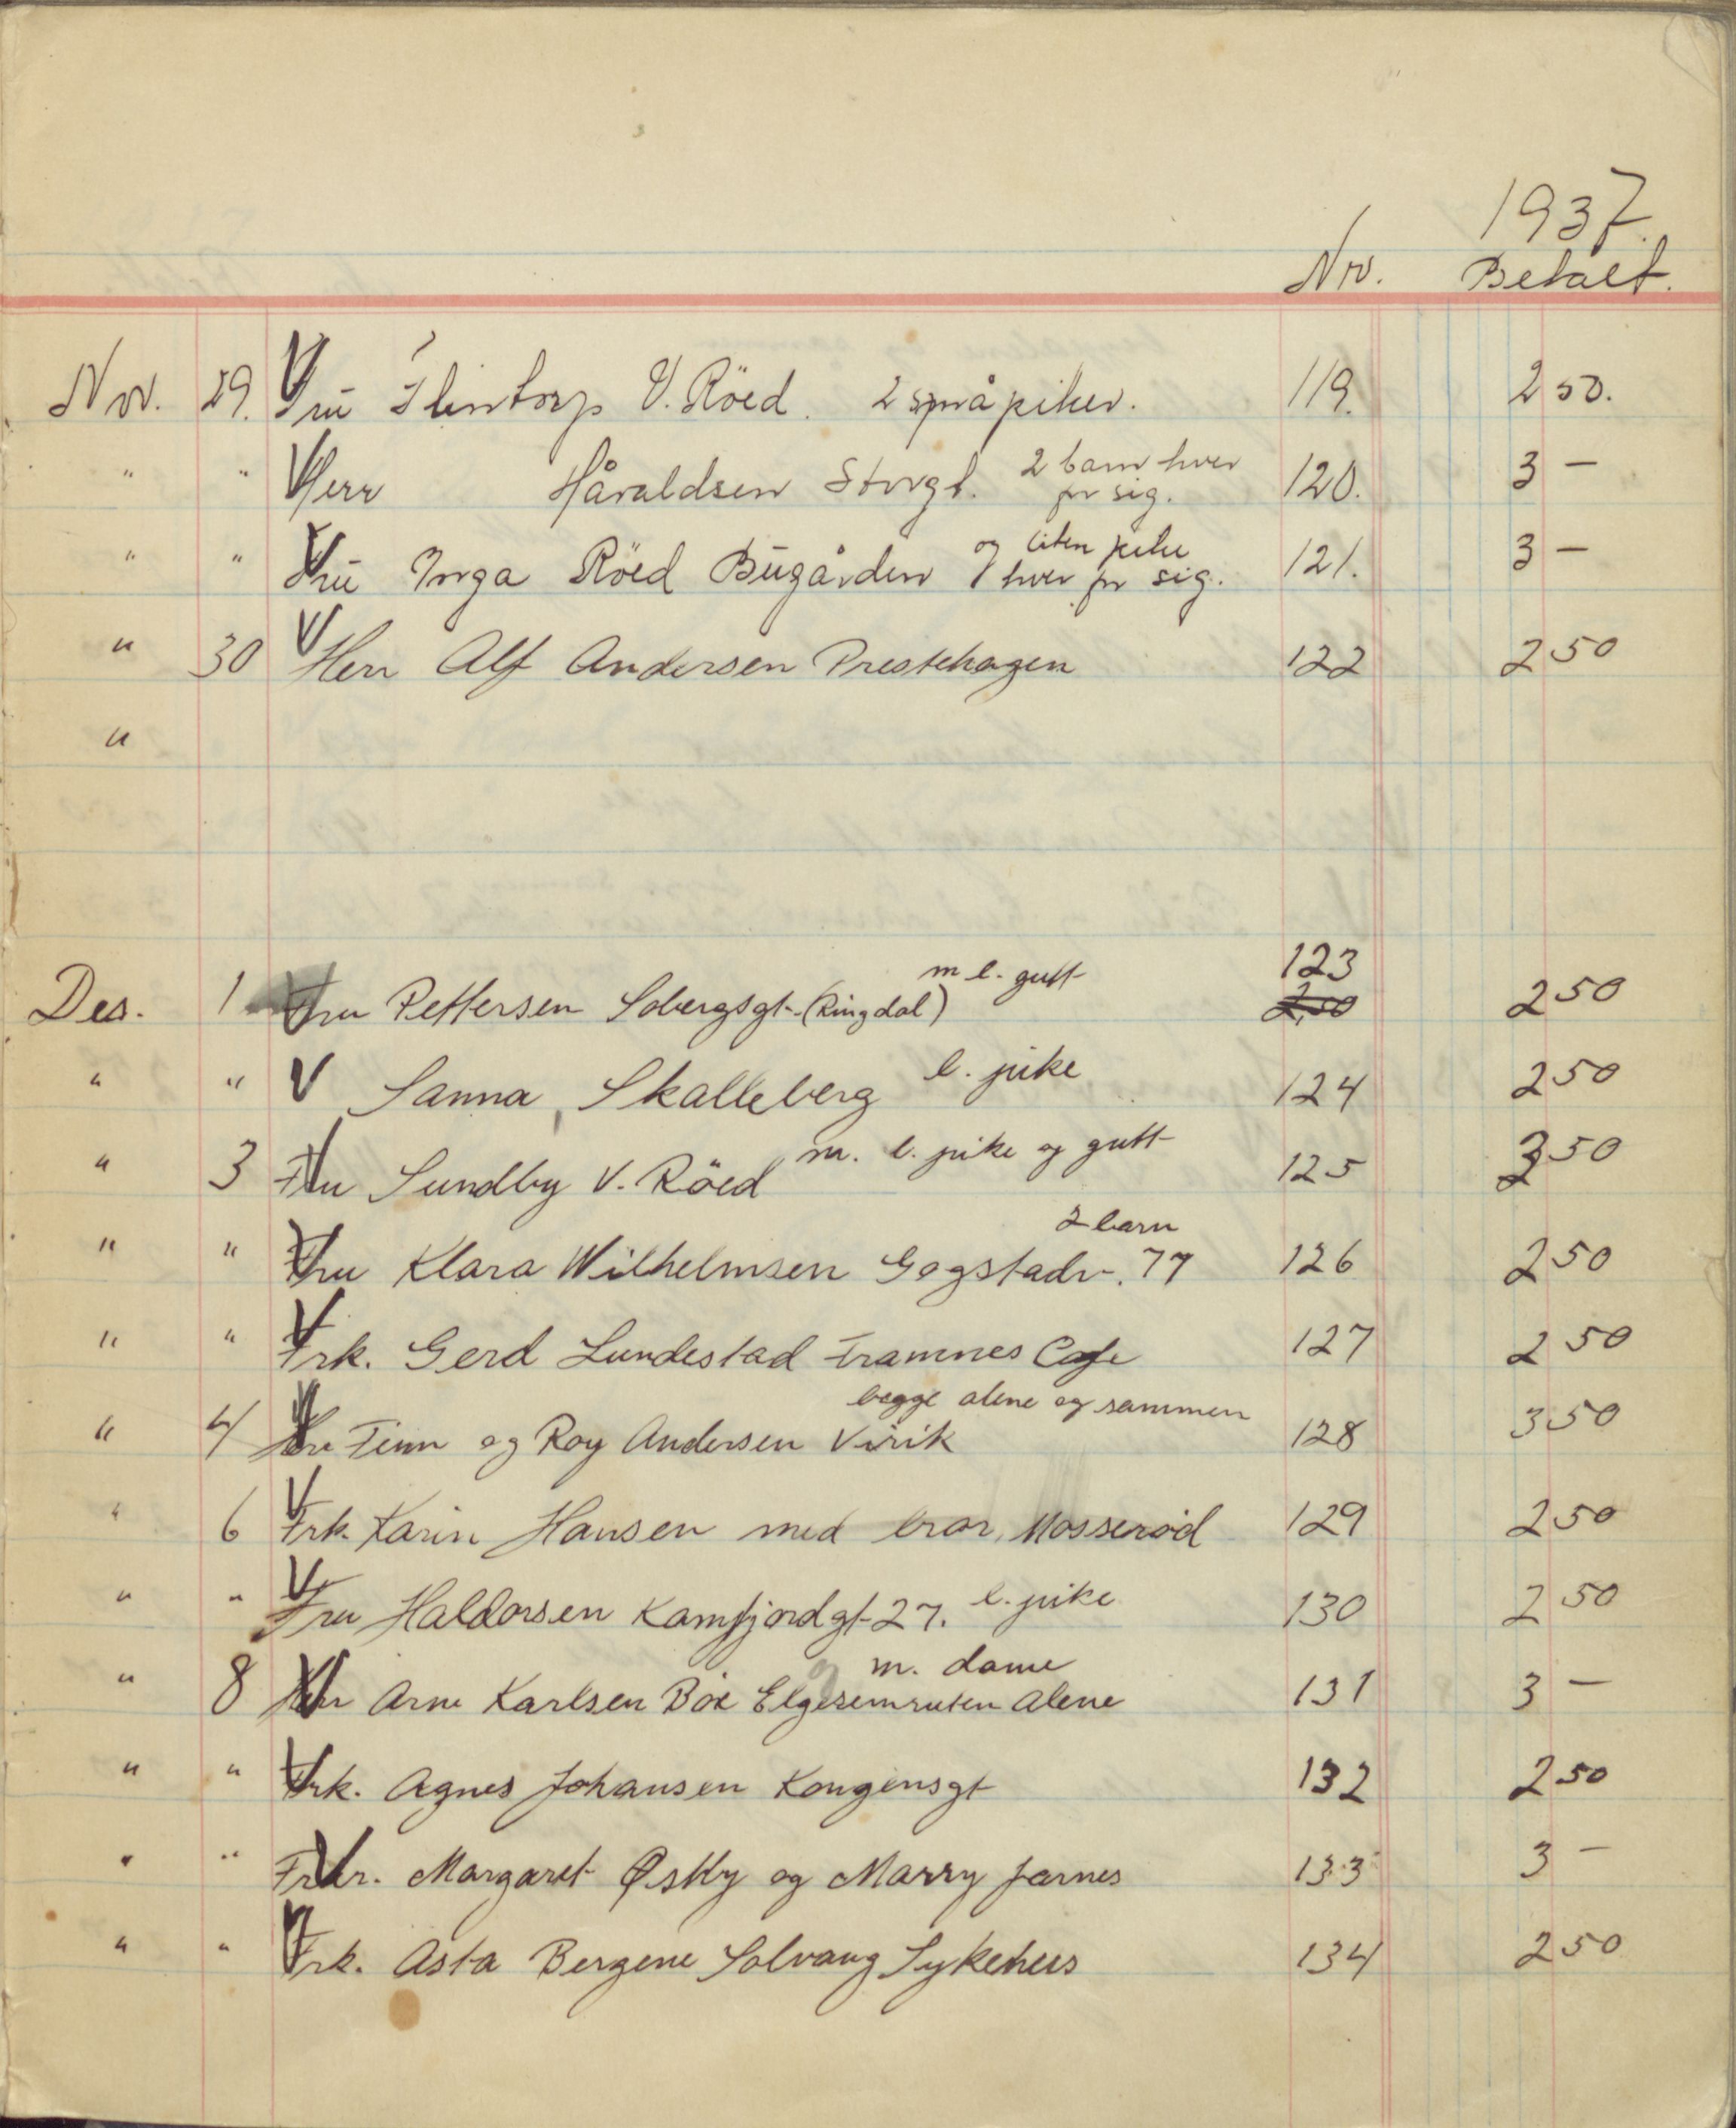 1937.
Nr. Betalt.
Nov. 29. Fru Flintorp V. Röed. 2 små piker. 119. 2 50.
" " Herr Håraldsen Storgt. 2 barn hver for sig. 120. 3 —
" " Fru Inga Röed Bugården og liten pike hver for sig. 121. 3 —
" 30 Herr Alf Andersen Prestehagen 122 2 50
"
Des. 1 Fru Pettersen Solbergsgt. (Ringdal) m l. gutt 123 2,50 2 50
" " V Sanna, Skalleberg l. pike 124 2 50
" 3 Fru Sundby V. Röed m. l. pike og gutt 125 3 50
" " Fru Klara Wilhelmsen Gogstadv. 77 2 barn 126 2 50
" " Frk. Gerd Lundestad Framnes Cafe 127 2 50
" 4 Hr Finn og Roy Andersen Virik begge alene og sammen 128 3 50
" 6 Frk. Karin Hansen med bror, Mosserød 129 2 50
" " Fru Haldorsen Kamfjordgt 27. l. pike 130 2 50
" 8 Herr Arne Karlsen Bøe Elgesemruten m. dame alene 131 3 —
" " Frk. Agnes Johansen Kongensgt 132 2 50
" " Frkr. Margaret Øsky og Marry Jarnes 133 3 —
" " Frk. Asta Bergene Solvang Sykehus 134 2 50